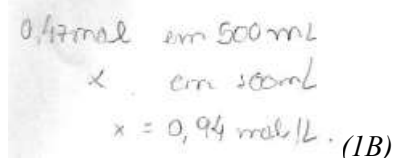 0,47mol em 500mL
x em 100mL
x = 0,94 mol/L. (1B)